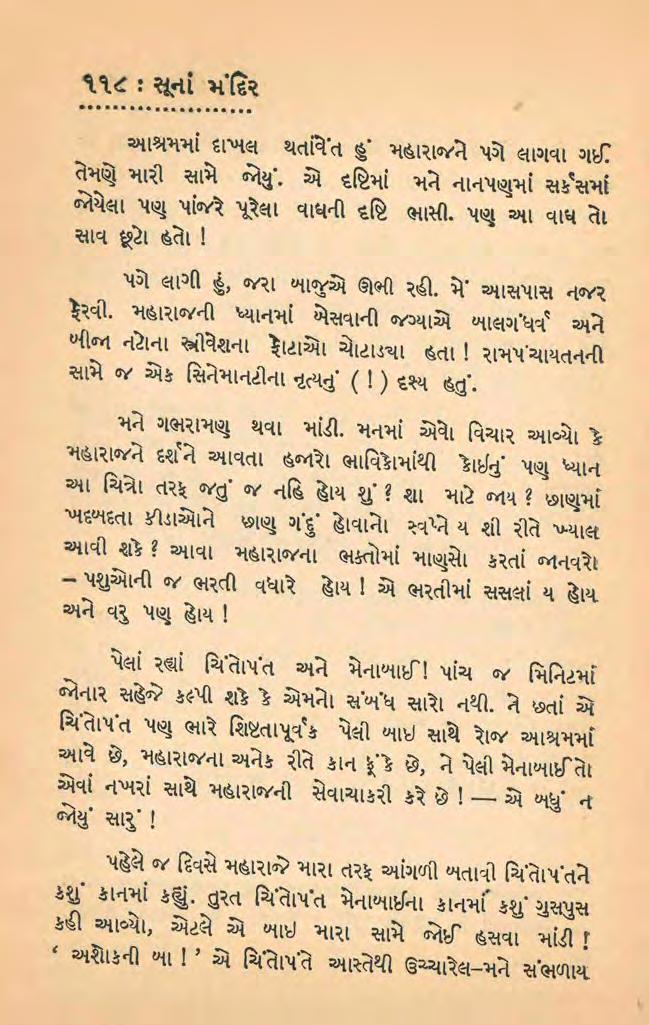 ૧૧૮ : સૂનાં મંદિર
આશ્રમમાં દાખલ થતાંવેંત હું મહારાજને પગે લાગવા ગઈ.
તેમણે મારી સામે જોયું. એ દૃષ્ટિમાં મને નાનપણમાં સર્કસમાં
જોયેલા પણ પાંજરે પૂરેલા વાઘની દૃષ્ટિ ભાસી. પણ આ વાઘ તો
સાવ છૂટો હતો !
પગે લાગી હું, જરા બાજુએ ઊભી રહી. મેં આસપાસ નજર
ફેરવી. મહારાજની ધ્યાનમાં બેસવાની જગ્યાએ બાલગંધર્વ અને
બીજા નટોના સ્ત્રીવેશના ફોટાઓ ચોટાડ્યા હતા ! રામપંચાયતનની
સામે જ એક સિનેમાનટીના નૃત્યનું ( ! ) દૃશ્ય હતું.
મને ગભરામણ થવા માંડી. મનમાં એવો વિચાર આવ્યો કે
મહારાજને દર્શને આવતા હજારો ભાવિકોમાંથી કોઇનું પણ ધ્યાન
આ ચિત્રો તરફ જતું જ નહિ હોય શું ? શા માટે જાય ? છાણમાં
ખદબદતા કીડાઓને છાણ ગંદું હોવાનો સ્વપ્ને ય શી રીતે ખ્યાલ
આવી શકે ? આવા મહારાજના ભક્તોમાં માણસો કરતાં જાનવરો
– પશુઓની જ ભરતી વધારે હોય ! એ ભરતીમાં સસલાં ય હોય
અને વરુ પણ હોય !
પેલાં રહ્યાં ચિંતોપંત અને મેનાબાઈ ! પાંચ જ મિનિટમાં
જોનાર સહેજે કલ્પી શકે કે એમનો સંબંધ સારો નથી. ને છતાં એ
ચિંતોપંત પણ ભારે શિષ્ટતાપૂર્વક પેલી બાઇ સાથે રોજ આશ્રમમાં
આવે છે, મહારાજના અનેક રીતે કાન ફૂંકે છે, ને પેલી મેનાબાઈ તો
એવાં નખરાં સાથે મહારાજની સેવાચાકરી કરે છે ! — એ બધું ન
જોયું સારું !
પહેલે જ દિવસે મહારાજે મારા તરફ આંગળી બતાવી ચિંતોપંતને
કશું કાનમાં કહ્યું. તુરત ચિંતોપંત મેનાબાઈના કાનમાં કશું ગુસપુસ
કહી આવ્યો, એટલે એ બાઇ મારા સામે જોઈ હસવા માંડી !
‘ અશોકની બા ! ’ એ ચિંતોપંતે આસ્તેથી ઉચ્ચારેલ–મને સંભળાય